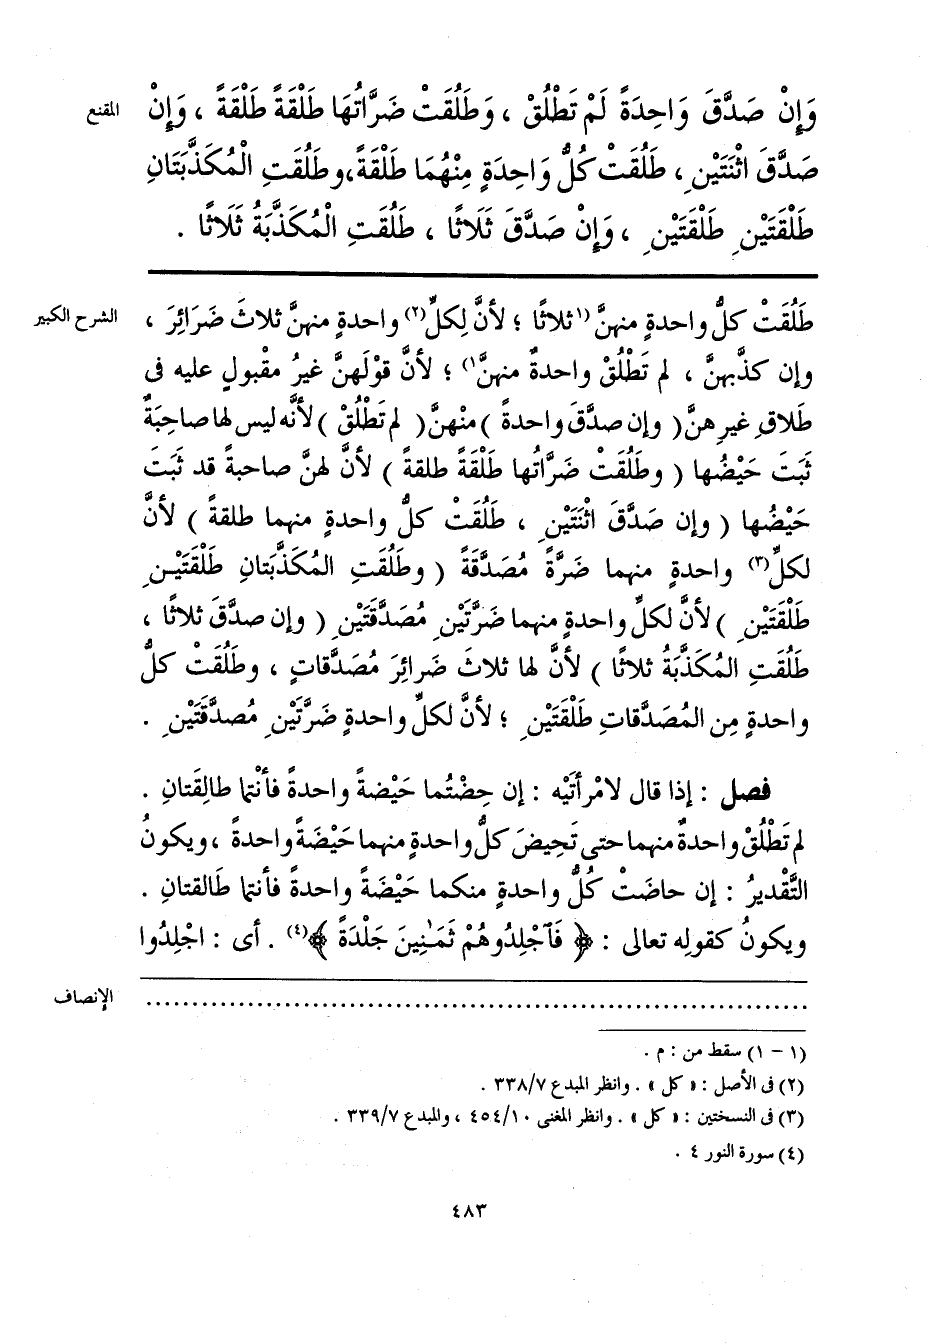 المقنع
وَإِنْ صَدَّقَ وَاحِدَةً لَمْ تَطْلُقْ ، وَطَلُقَتْ ضَرَّاتُهَا طَلْقَةً طَلْقَةً ، وَإِنْ
صَدَّقَ اثْنَتَيْنِ ، طَلُقَتْ كُلُّ وَاحِدَةٍ مِنْهُمَا طَلْقَةً ، وطَلُقَتِ الْمُكَذَّبَتَانِ
طَلْقَتَيْنِ طَلْقَتَيْنِ ، وَإِنْ صَدَّقَ ثَلَاثًا ، طَلُقَتِ الْمُكَذَّبَةُ ثَلَاثًا .
الشرح الكبير
طَلُقَتْ كلُّ واحدةٍ منهنَّ (١ثلاثًا ؛ لأنَّ لِكلٍّ(٢) واحدةٍ منهنَّ ثلاثَ ضَرَائِرَ ،
وإن كذَّبهنَّ ، لم تَطْلُقْ واحدةٌ منهنَّ١) ؛ لأنَّ قوْلَهنَّ غيرُ مقْبولٍ عليه فى
طَلاقِ غيرِهنَّ ( وإن صدَّقَ واحدةً ) منْهنَّ ( لم تَطْلُقْ ) لأنَّه ليس لها صاحِبَةٌ
ثَبَتَ حَيْضُها ( وطَلُقَتْ ضَرَّاتُها طَلْقَةً طلقةً ) لأنَّ لهنَّ صاحبةً قد ثَبَتَ
حَيْضُها ( وإن صَدَّقَ اثْنَتَيْنِ ، طَلُقَتْ كلُّ واحدةٍ منهما طلقةً ) لأنَّ
لكلٍّ(٣) واحدةٍ منهما ضَرَّةً مُصَدَّقَةً ( وطَلُقَتِ المُكَذَّبَتانِ طَلْقَتَيْنِ
طَلْقَتَيْنِ ) لأنَّ لكلِّ واحدةٍ منهما ضَرَّتَيْنِ مُصَدَّقَتَيْنِ ( وإن صدَّقَ ثلاثًا ،
طَلُقَتِ المُكَذَّبَةُ ثلاثًا ) لأنَّ لها ثلاثَ ضَرائِرَ مُصَدَّقاتٍ ، وطَلُقَتْ كلُّ
واحدةٍ مِن المُصَدَّقاتِ طَلْقَتَيْنِ ؛ لأنَّ لكلِّ واحدةٍ ضَرَّتَيْنِ مُصدَّقَتَيْنِ .
فصل : إذا قال لامْرأتَيْه : إن حِضْتُما حَيْضةً واحدةً فأنْتما طالِقَتانِ .
لم تَطْلُقْ واحدةٌ منهما حتى تَحِيضَ كلُّ واحدةٍ منهما حَيْضَةً واحدةً ، ويكونُ
التَّقْديرُ : إن حاضَتْ كُلُّ واحدةٍ منكما حَيْضَةً واحدةً فأنتما طَالقتانِ .
ويكونُ كقولِه تعالى : ﴿ فَٱجْلِدُوهُمْ ثَمَـٰنِينَ جَلْدَةً ﴾(٤) . أى : اجْلِدُوا
الإنصاف
(١ - ١) سقط من : م .
(٢) فى الأصل : « كل » . وانظر المبدع ٣٣٨/٧ .
(٣) فى النسختين : « كل » . وانظر المغنى ٤٥٤/١٠ ، والمبدع ٣٣٩/٧ .
(٤) سورة النور ٤ .
٤٨٣